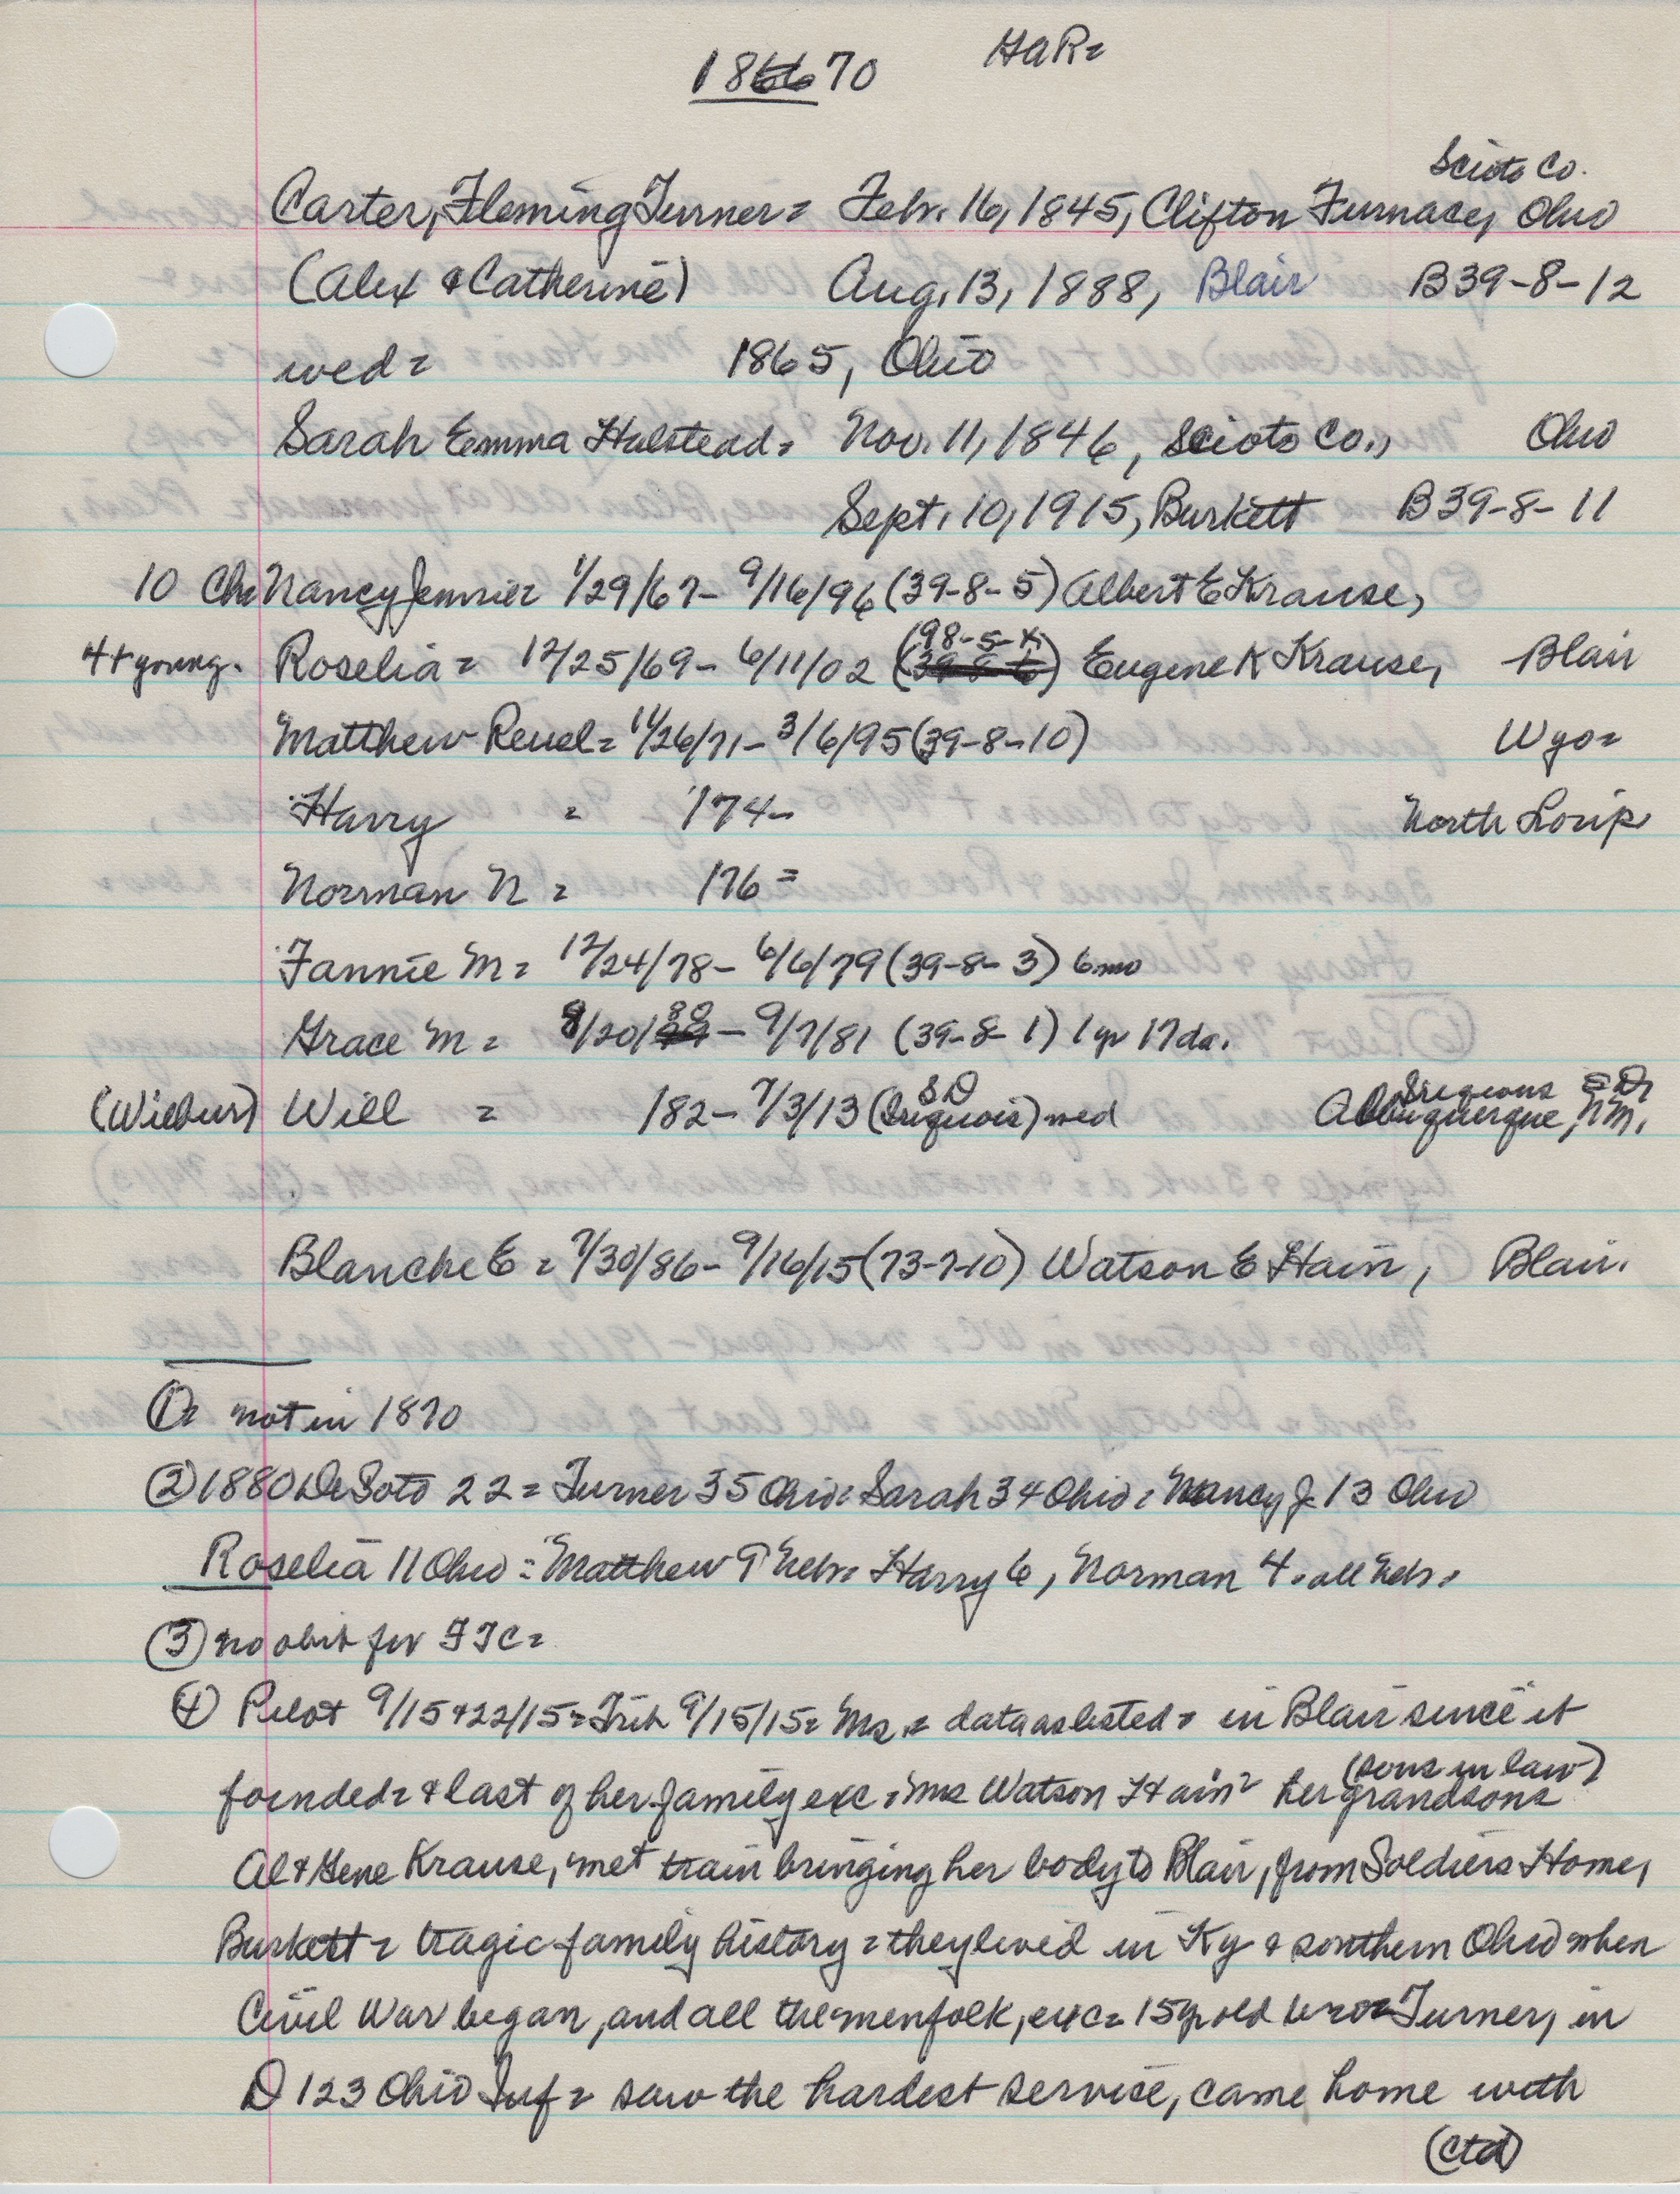 186670 HaR=
Scioto Co.
Carter, Fleming Turner = Feb. 16, 1845, Clifton Furnace, Ohio
(Alex & Catherine) Aug. 13, 1888, Blair B39-8-12
wed = 1865, Ohio
Sarah Emma Halstead = Nov. 11, 1846, Scioto Co., Ohio
Sept. 10, 1915, Burkett B39-8-11
10 Ch= Nancy Jennie = 1/29/67 - 9/16/96 (39-8-5) Albert E Krause,
4 + young. Roselia = 12/25/69 - 6/11/02 (98-5-x) Eugene K Krause, Blair
Matthew Reuel = 11/26/71 - 3/6/95 (39-8-10) Wyo=
Harry = '174- North Loup
Norman N = 176 =
Fannie M = 12/24/78 - 6/6/79 (39-8-3) 6 mo
Grace M = 8/20/80 - 9/7/81 (39-8-1) 1 yr 17 da.
(Wilbur) Will = 182 - 7/3/13 (Iroquois) SD wed Albuquerque, NM.
Blanche E = 7/30/86 - 9/16/15 (73-7-10) Watson E Hain, Blair.
① = not in 1870
② 1880 DeSoto 22 = Turner 35 Ohio = Sarah 34 Ohio = Nancy J 13 Ohio
Roselia 11 Ohio = Matthew 9 Neb= Harry 6, Norman 4. all Neb.
③ no obit for FTC =
④ Pilot 9/15 & 22/15 = Trib 9/15/15 = Ms. = data as listed = in Blair since it
founded = & last of her family exc = Mrs Watson Hain = her grandsons (sons in law)
Al & Gene Krause, met train bringing her body to Blair, from Soldiers Home,
Burkett = tragic family history = they lived in Ky & southern Ohio when
Civil War began, and all the menfolk, exc = 15 yr old bro = Turner, in
D 123 Ohio Inf = saw the hardest service, came home with
(ctd)